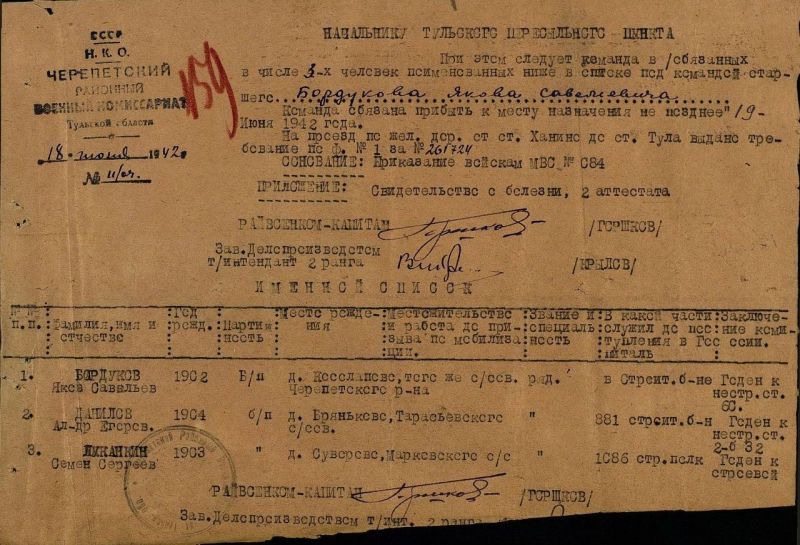 СССР
Н.К.О.
ЧЕРЕПЕТСКИЙ
РАЙОННЫЙ
ВОЕННЫЙ КОМИССАРИАТ
Тульской области
18 июня 1942 г.
№ 11/сч.
159
НАЧАЛЬНИКУ ТУЛЬСКОГО ПЕРЕСЫЛЬНОГО ПУНКТА
При этом следует команда в /обязанных
в числе 3-х человек поименованных ниже в списке под командой стар-
шего Бордукова Якова Савельевича
Команда обязана прибыть к месту назначения не позднее "19-
Июня 1942 года.
На проезд по жел. дор. от ст. Ханино до ст. Тула выдано тре-
бование по ф. № 1 за № 261724
ОСНОВАНИЕ: Приказание войскам МВО № 084
ПРИЛОЖЕНИЕ: Свидетельство о болезни, 2 аттестата
РАЙВОЕНКОМ-КАПИТАН /ГОРШКОВ/
Зав. Делопроизводством
т/интендант 2 ранга /КРЫЛОВ/
ИМЕННОЙ СПИСОК
№ № п.п. Фамилия, имя и отчество
Год рожд.
Партийность
Место рождения
Местожительство и работа до призыва по мобилизации.
Звание и специальность
В какой части служил до поступления в Госпиталь
Заключение комиссии.
1. БОРДУКОВ Яков Савельев 1902 Б/п д. Песлапово, того же с/сов. Черепетского р-на ряд. в Строит. б-не Годен к нестр. ст. 60.
2. ДАНИЛОВ Ал-др Егоров. 1904 б/п д. Бряньково, Тарасьевского с/сов. " 881 строит. б-н Годен к нестр. ст. 2-б 32
3. ЛИКАНКИН Семен Сергеев 1903 " д. Суворово, Марковского с/с " 1086 стр. полк Годен к строевой
РАЙВОЕНКОМ-КАПИТАН /ГОРШКОВ/
Зав. Делопроизводством т/инт. 2 ранга